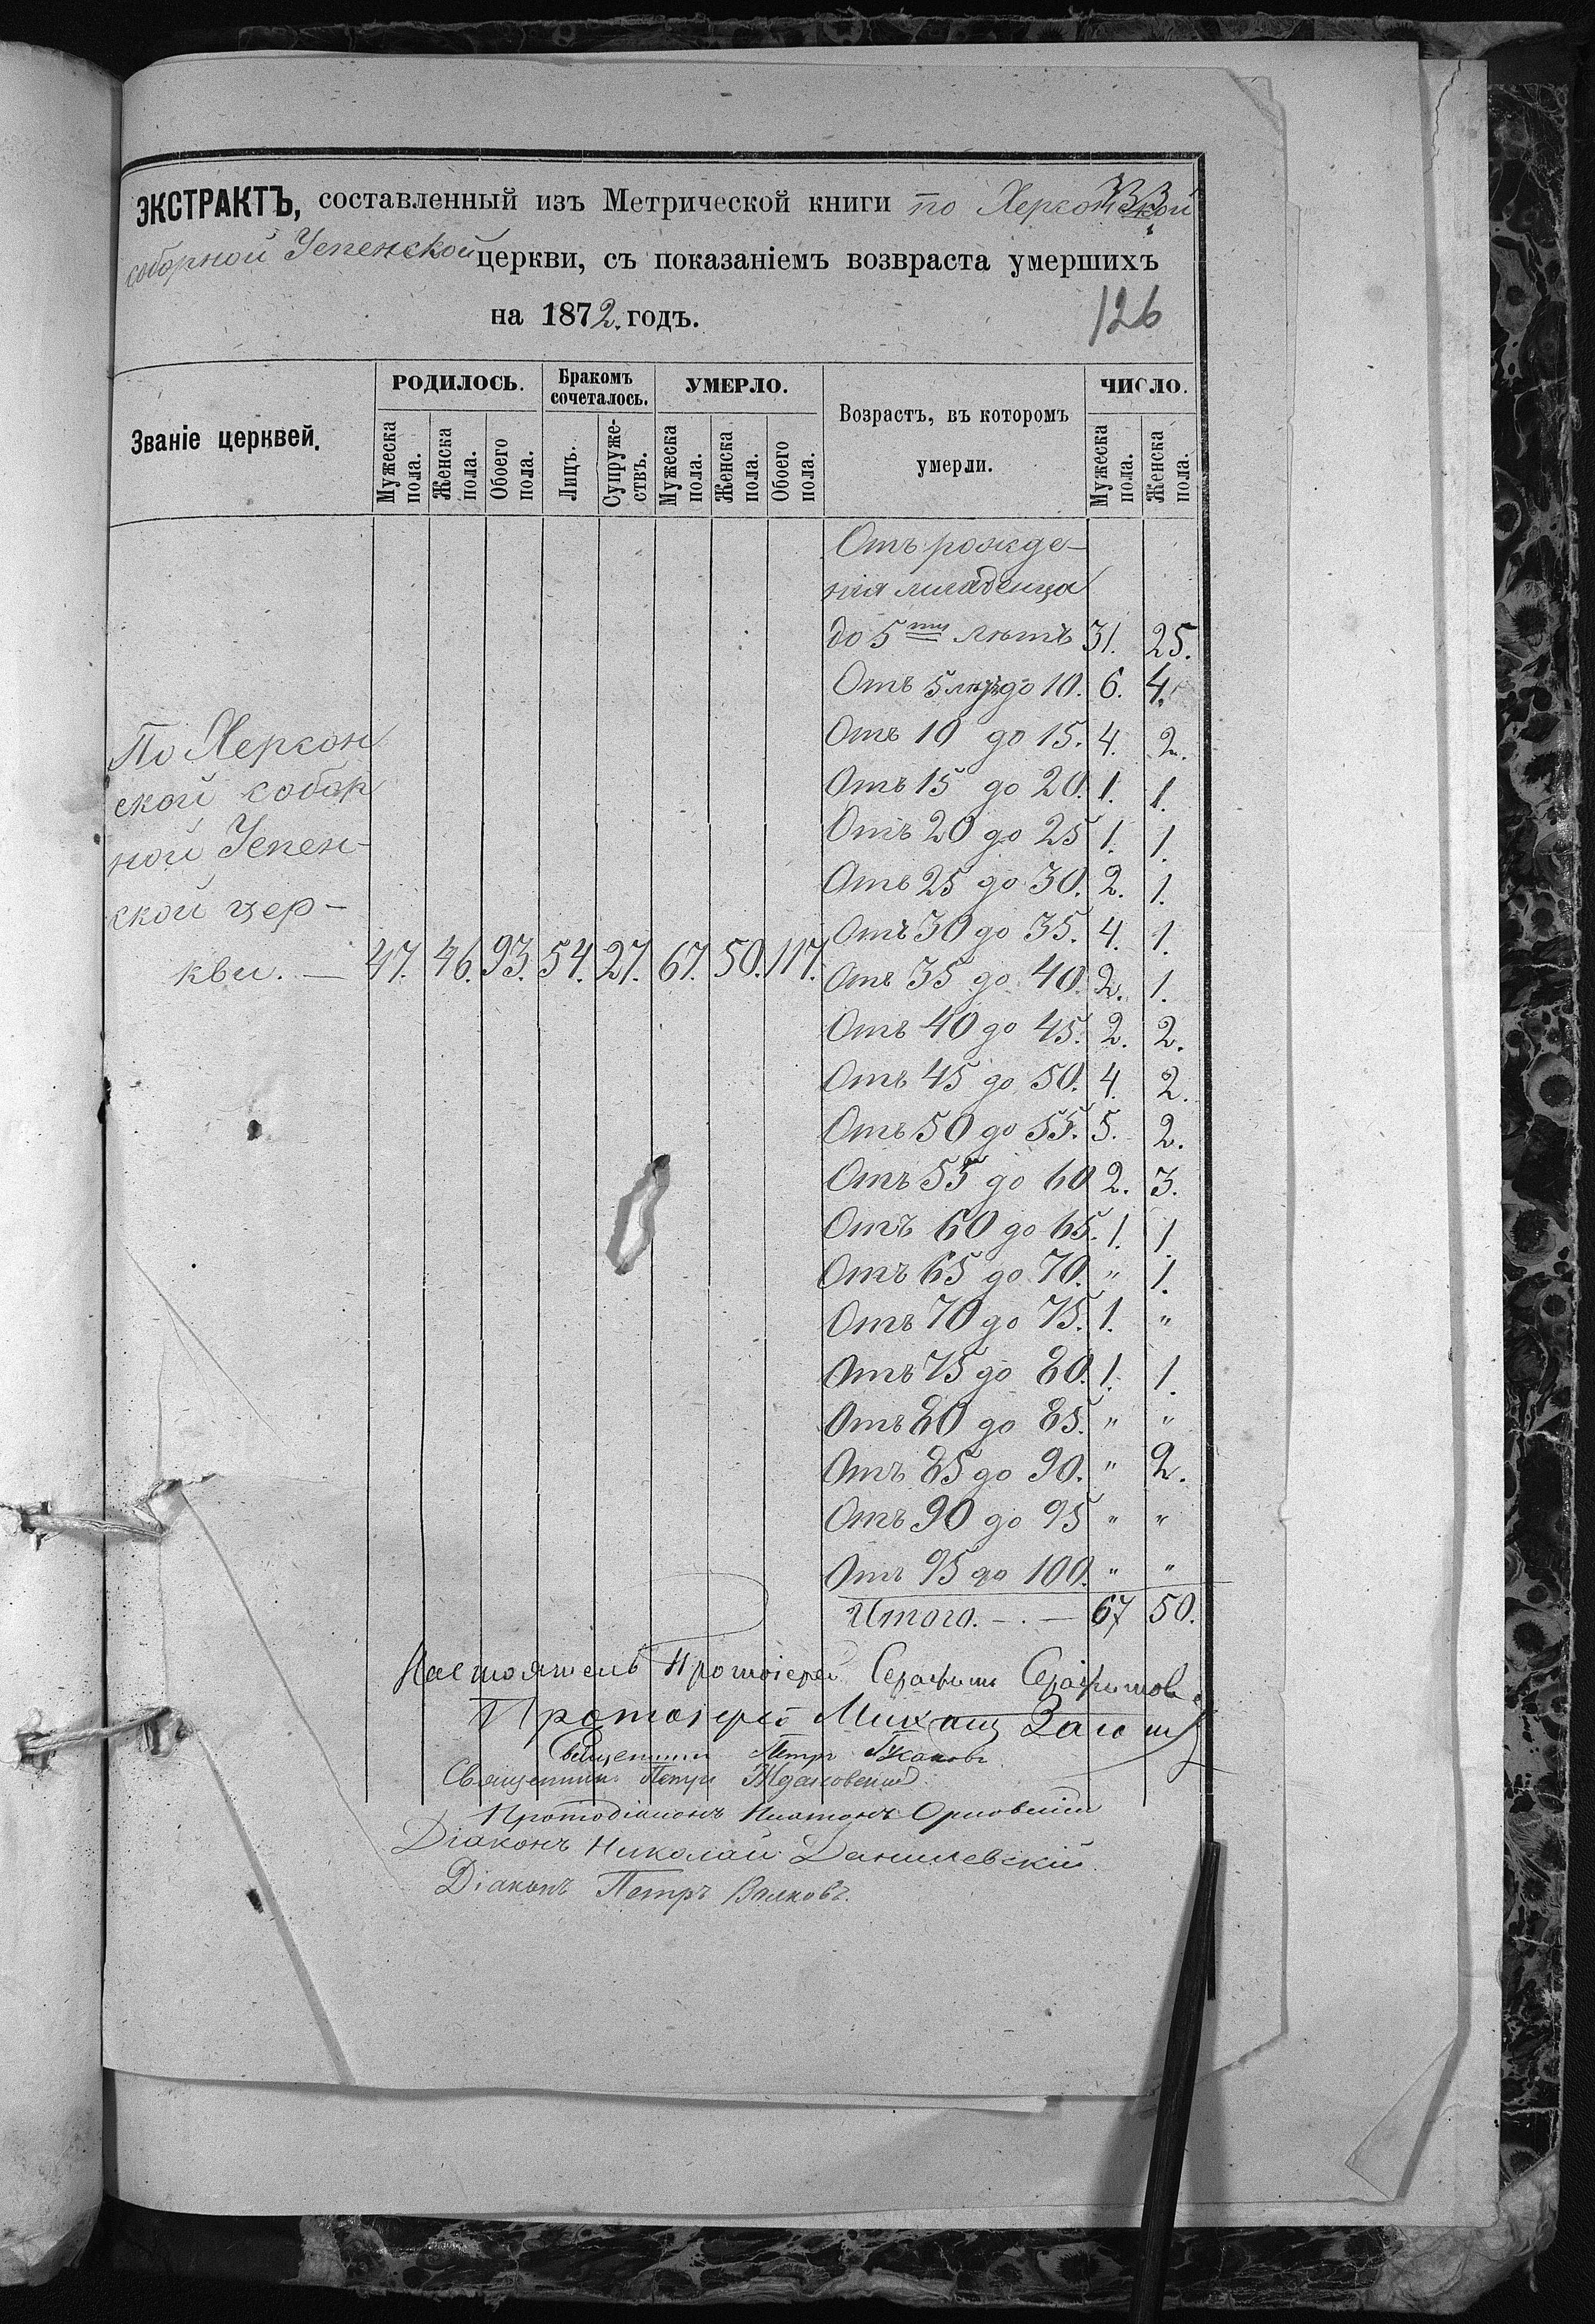 ЭКСТРАКТЪ, составленный изъ Метрической книги по Херсонской
соборной Успенской церкви, съ показаніемъ возвраста умершихъ
на 1872. годъ.
126
Званіе церквей. РОДИЛОСЬ. Бракомъ сочеталось. УМЕРЛО. Возрастъ, въ которомъ умерли. ЧИСЛО.
Мужеска пола. Женска пола. Обоего пола. Лицъ. Супружествъ. Мужеска пола. Женска пола. Обоего пола. Мужеска пола. Женска пола.
Отъ рожде-
нія младенца
до 5ти лѣтъ 31. 25.
Отъ 5 лѣтъ до 10. 6. 4.
Отъ 10 до 15. 4. 2.
Отъ 15 до 20. 1. 1.
Отъ 20 до 25 1. 1.
Отъ 25 до 30. 2. 1.
Отъ 30 до 35. 4. 1.
Отъ 35 до 40. 2. 1.
Отъ 40 до 45. 2. 2.
Отъ 45 до 50. 4. 2.
Отъ 50 до 55. 5. 2.
Отъ 55 до 60 2. 3.
Отъ 60 до 65. 1. 1.
Отъ 65 до 70. " 1.
Отъ 70 до 75. 1. "
Отъ 75 до 80. 1. 1.
Отъ 80 до 85. " "
Отъ 85 до 90. " 2.
Отъ 90 до 95 " "
Отъ 95 до 100. " "
Итого. - . — 67 50.
По Херсон
ской собор
ной Успен-
ской цер-
кви. — 47. 46. 93. 54. 27. 67. 50. 117.
Настоятель Протоіерей Серафимъ Серафимовъ
Протоіерей Михаил
Священник Петръ
Священникъ Петръ Ждановскій
Протодіаконъ Платонъ Орловскій
Діаконъ Николай Данилевскій.
Діаконъ Петръ Волковъ.